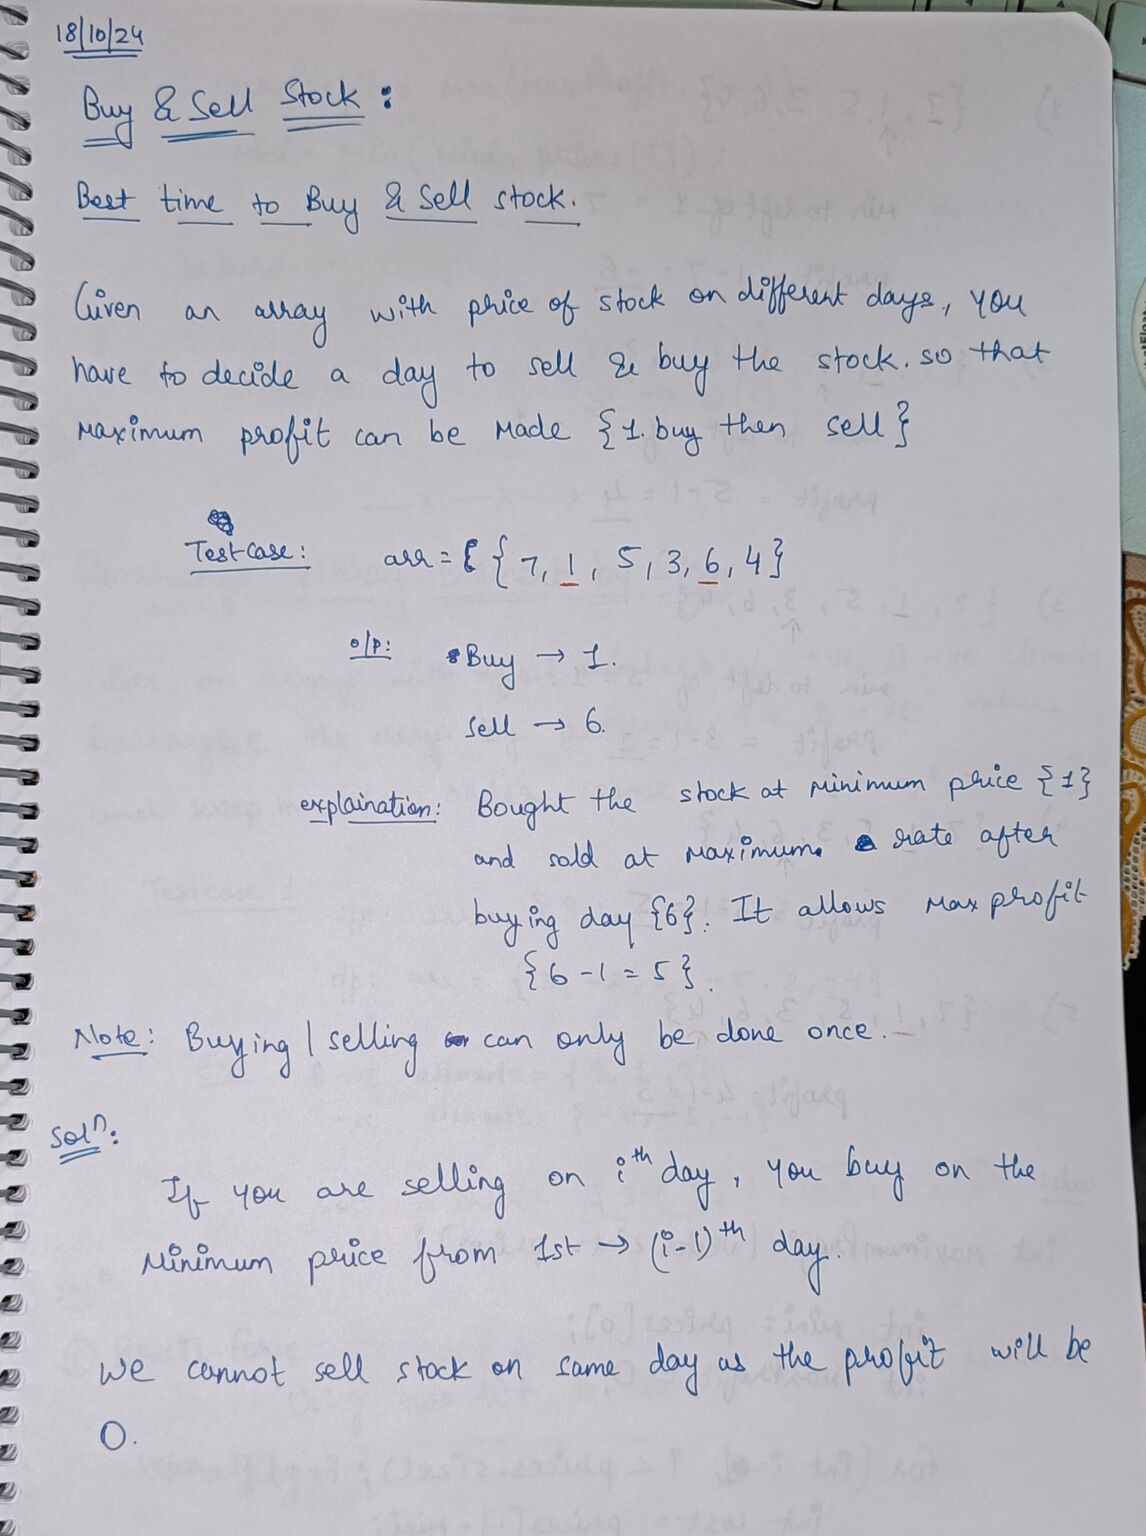 18/10/24
Buy & Sell Stock :
Best time to Buy & Sell stock.
Given an array with price of stock on different days, you
have to decide a day to sell & buy the stock. so that
maximum profit can be made {1. buy then sell}
Testcase: arr = { 7, 1, 5, 3, 6, 4}
o/p: Buy → 1.
Sell → 6.
explaination: Bought the stock at minimum price {1}
and sold at maximum rate after
buying day {6}. It allows max profit
{6 - 1 = 5}.
Note: Buying / selling can only be done once.
Solⁿ:
If you are selling on iᵗʰ day, you buy on the
minimum price from 1st → (i-1)ᵗʰ day.
We cannot sell stock on same day as the profit will be
0.